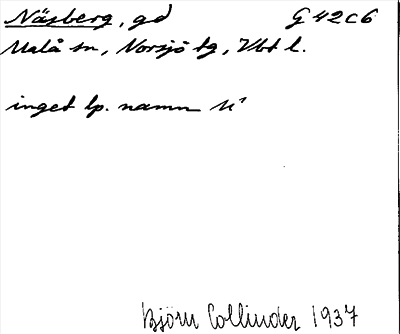 Näsberg, gd G 42 C 6
Malå sn, Norsjö tg, Vbt l.
inget lp. namn
Björn Collinder 1937